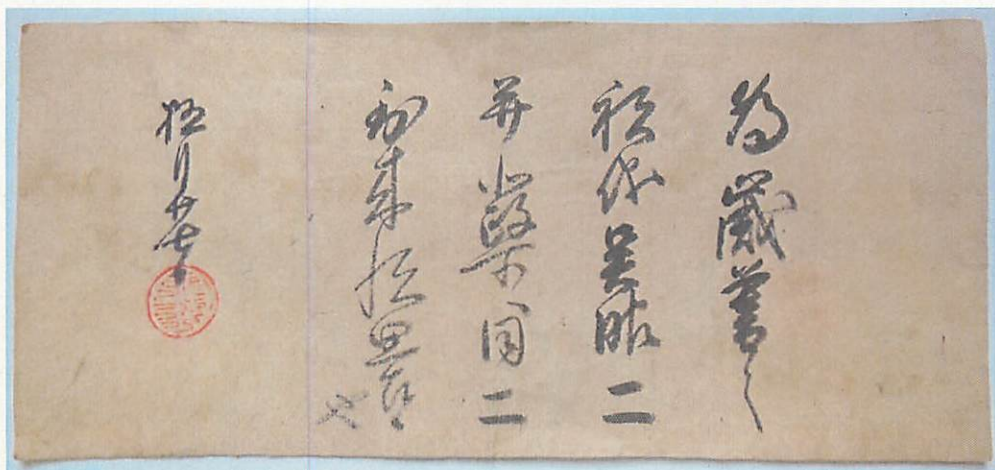 為歳暮之
祝儀呉服二
并同二
到来悦
也
極月廿七日